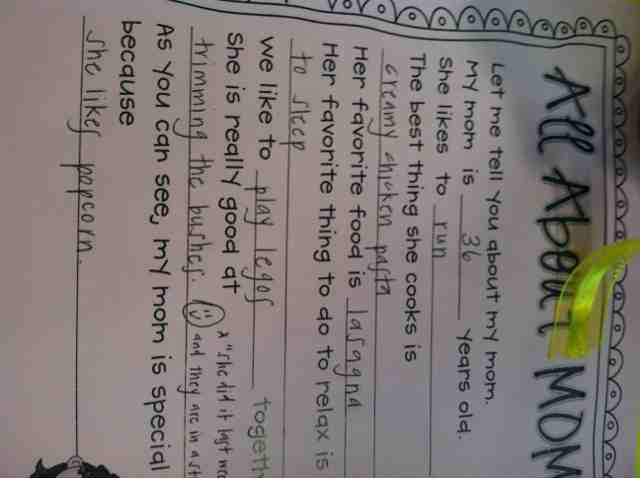 All About MOM
Let me tell you about my mom.
My mom is 36 years old.
She likes to run
The best thing she cooks is
creamy chicken pasta
Her favorite food is lasagna
Her favorite thing to do to relax is
to sleep
We like to play legos
She is really good at
*"she did it last
trimming the bushes. and they are in a
As you can see, my mom is special
because
she likes popcorn.